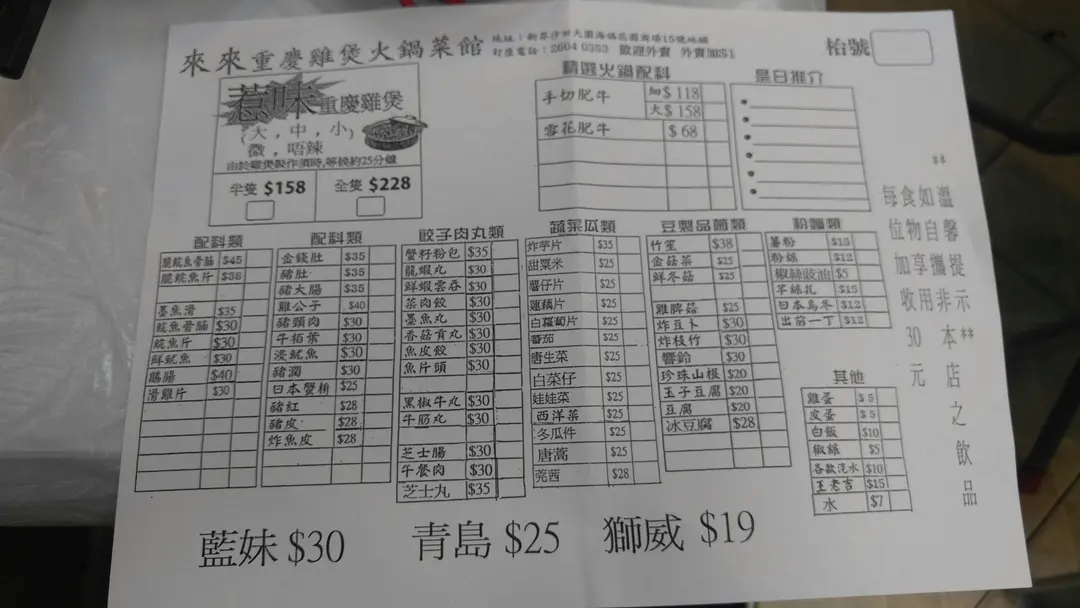 來來重慶雞煲火鍋菜館
訂座電話：2604 0353 歡迎外賣 外賣加$1
枱號
惹味重慶雞煲
(大，中，小)
微，唔辣
由於雞煲製作需時,等候約25分鐘
半隻 $158 全隻 $228
精選火鍋配料
手切肥牛 細$ 118
大$ 158
雪花肥牛 $ 68
是日推介
配料類
脆鯇魚骨腩 $45
脆鯇魚片 $38
墨魚滑 $35
鯇魚骨腩 $30
鯇魚片 $30
鮮魷魚 $30
鵝腸 $40
滑雞片 $30
配料類
金錢肚 $35
豬肚 $35
豬大腸 $35
雞公子 $40
豬頸肉 $30
牛栢葉 $30
浸魷魚 $30
豬潤 $30
日本蟹柳 $25
豬紅 $28
豬皮 $28
炸魚皮 $28
餃子肉丸類
蟹籽粉包 $35
龍蝦丸 $30
鮮蝦雲吞 $30
菜肉餃 $30
墨魚丸 $30
香菇貢丸 $30
魚皮餃 $30
魚片頭 $30
黑椒牛丸 $30
牛筋丸 $30
芝士腸 $30
午餐肉 $30
芝士丸 $35
蔬菜瓜類
炸芋片 $35
甜粟米 $25
薯仔片 $25
蓮藕片 $25
白蘿蔔片 $25
蕃茄 $25
唐生菜 $25
白菜仔 $25
娃娃菜 $25
西洋菜 $25
冬瓜件 $25
唐蒿 $25
芫茜 $28
豆製品菌類
竹笙 $38
金菇菜 $25
鮮冬菇 $25
雞脾菇 $25
炸豆卜 $30
炸枝竹 $30
響鈴 $30
珍珠山根 $20
玉子豆腐 $20
豆腐 $20
冰豆腐 $28
粉麵類
薯粉 $15
粉絲 $12
椒絲豉油 $5
芊絲扎 $15
日本烏冬 $12
出前一丁 $12
其他
雞蛋 $ 5
皮蛋 $ 5
白飯 $10
椒絲 $5
各款汽水 $10
王老吉 $15
水 $7
**溫馨提示**
如自攜非本店之飲品
食物享用
每位加收30元
藍妹 $30 青島 $25 獅威 $19